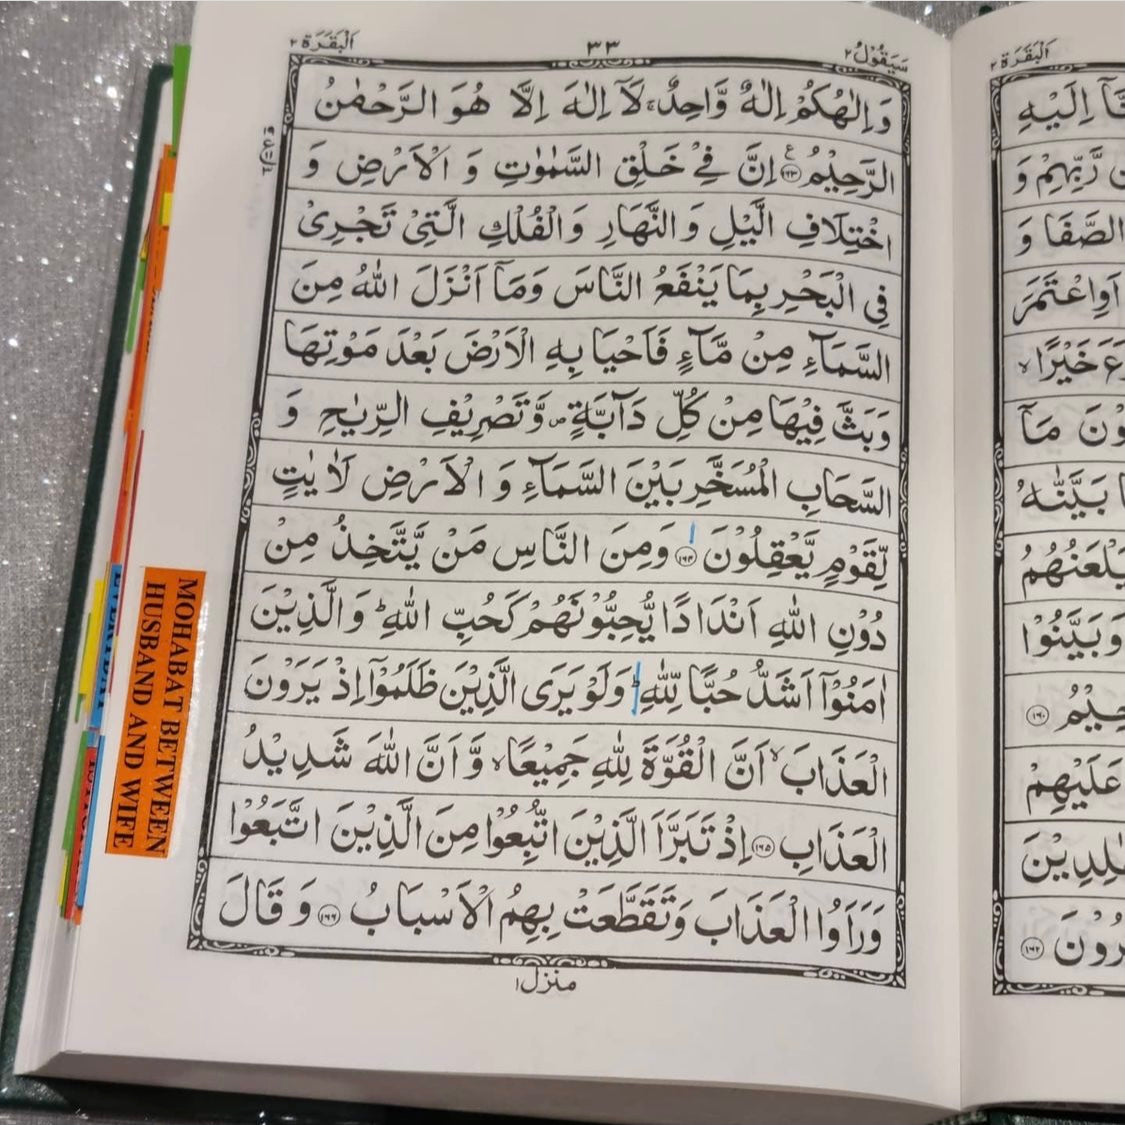 البقرة ٢
٣٣
سيقول ٢
وَاِلٰهُكُمْ اِلٰهٌ وَّاحِدٌ ۚ لَآ اِلٰهَ اِلَّا هُوَ الرَّحْمٰنُ
الرَّحِيْمُ ﴿١٦٣﴾ ع اِنَّ فِيْ خَلْقِ السَّمٰوٰتِ وَ الْاَرْضِ وَ
اخْتِلَافِ الَّيْلِ وَ النَّهَارِ وَالْفُلْكِ الَّتِيْ تَجْرِيْ
فِى الْبَحْرِ بِمَا يَنْفَعُ النَّاسَ وَمَآ اَنْزَلَ اللّٰهُ مِنَ
السَّمَآءِ مِنْ مَّآءٍ فَاَحْيَا بِهِ الْاَرْضَ بَعْدَ مَوْتِهَا
وَبَثَّ فِيْهَا مِنْ كُلِّ دَآبَّةٍ ۪ وَّتَصْرِيْفِ الرِّيٰحِ وَ
السَّحَابِ الْمُسَخَّرِ بَيْنَ السَّمَآءِ وَ الْاَرْضِ لَاٰيٰتٍ
لِّقَوْمٍ يَّعْقِلُوْنَ ﴿١٦٤﴾ وَمِنَ النَّاسِ مَنْ يَّتَّخِذُ مِنْ
دُوْنِ اللّٰهِ اَنْدَادًا يُّحِبُّوْنَهُمْ كَحُبِّ اللّٰهِ ؕ وَالَّذِيْنَ
اٰمَنُوْٓا اَشَدُّ حُبًّا لِّلّٰهِ ؕ وَلَوْ يَرَى الَّذِيْنَ ظَلَمُوْٓا اِذْ يَرَوْنَ
الْعَذَابَ ۙ اَنَّ الْقُوَّةَ لِلّٰهِ جَمِيْعًا ۙ وَّاَنَّ اللّٰهَ شَدِيْدُ
الْعَذَابِ ﴿١٦٥﴾ اِذْ تَبَرَّاَ الَّذِيْنَ اتُّبِعُوْا مِنَ الَّذِيْنَ اتَّبَعُوْا
وَرَاَوُا الْعَذَابَ وَتَقَطَّعَتْ بِهِمُ الْاَسْبَابُ ﴿١٦٦﴾ وَ قَالَ
منزل ١
MOHABAT BETWEEN
HUSBAND AND WIFE
البقرة ٢
اِلَيْهِ
رَّبِّهِمْ وَ
الصَّفَا وَ
اَوِاعْتَمَرَ
خَيْرًا ۙ
مَآ
بَيَّنّٰهُ
وَبَيَّنُوْا
﴿١٦٠﴾
عَلَيْهِمْ
﴿١٦٢﴾